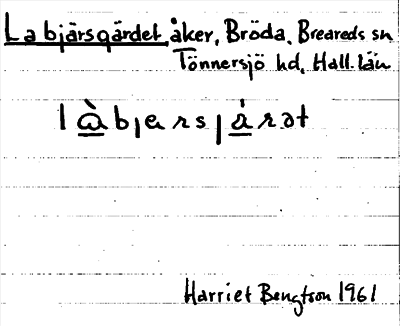 Labjärsgärdet åker, Bröda, Breareds sn
Tönnersjö hd, Hall. län
l à b j ɛ r s j á r ə t
Harriet Bengtson 1961